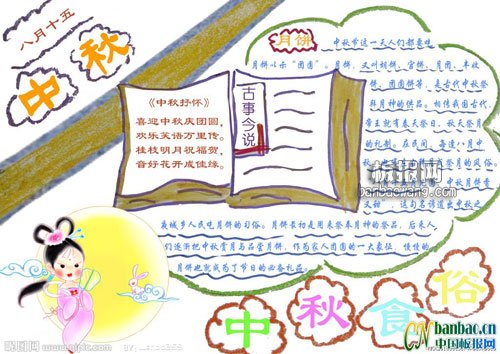 八月十五
中秋
《中秋抒怀》
喜迎中秋庆团圆,
欢乐笑语万里传。
桂枝明月祝福贺,
音好花开成佳缘。
古事今说
月饼
中秋节这一天人们都要吃
月饼以示“团圆”。月饼,又叫胡饼、宫饼、月团、丰收
饼、团圆饼等,是古代中秋祭
拜月神的供品。相传我国古代,
帝王就有春天祭日、秋天祭月
的礼制。在民间,每逢八月中
夜城乡人民吃月饼的习俗。月饼最初是用来祭奉月神的祭品,后来人
们逐渐把中秋赏月与品尝月饼,作为家人团圆的一大象征,慢慢的
月饼也就成为了节日的必备礼品。
中秋食俗
板报网
banbaowang.com
昵图网
banbao.cn
中国板报网